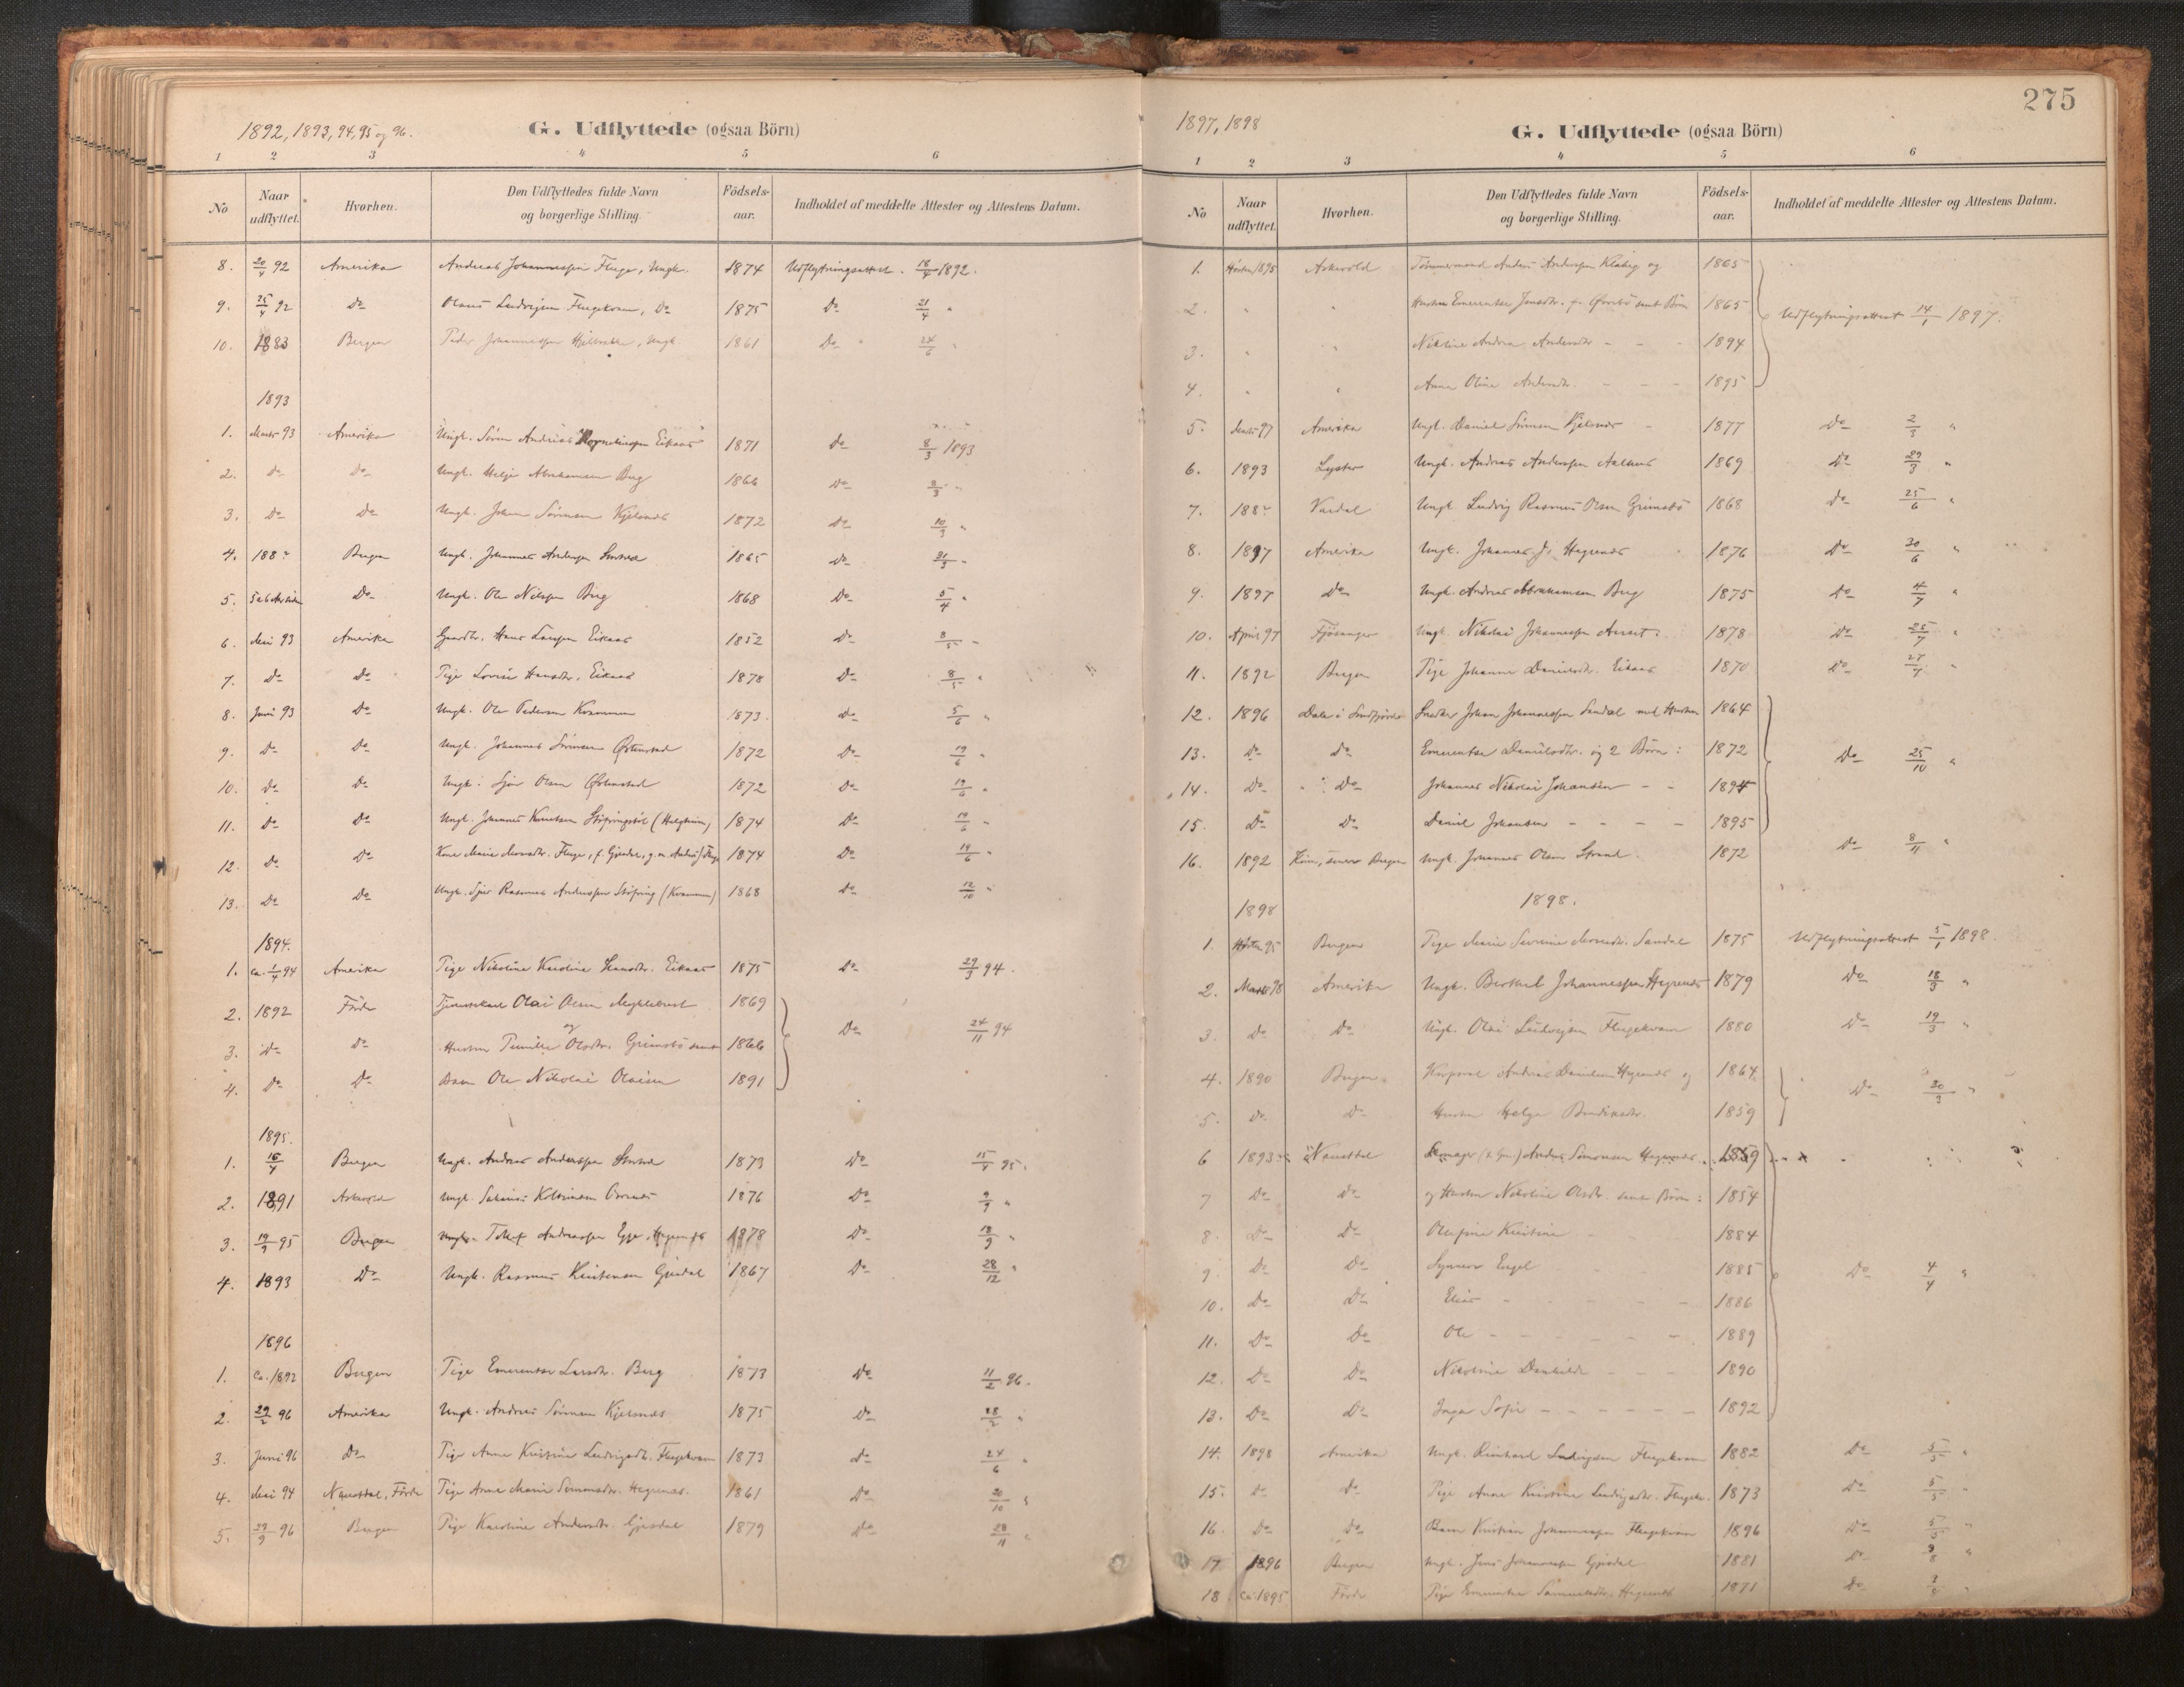 1892, 1893, 94, 95 og 96.
G. Udflyttede (ogsaa Börn)
1 2 3 4 5 6
No Naar udflyttet. Hvorhen. Den Udflyttedes fulde Navn og borgerlige Stilling. Födsels-aar. Indholdet af meddelte Attester og Attestens Datum.
8. 20/4 92 Amerika Andreas Johannessen Fluge, Ungk. 1874 Udflytningsattest. 18/4 1892.
9. 25/4 92 Do Olaus Ludvigsen Flugekvam, Do 1875 Do 21/4 "
10. 1883 Bergen Peder Johannessen Ungk 1861 Do 24/6 "
1893
1. Marts 93 Amerika Ungk. Sören Andreas Eikaas 1871 Do 8/3 1893
2. Do Do Ungk. Helje Abrahamsen Berg 1866 Do 8/3 "
3. Do Do Ungk. Johan Sörensen Kjelsnes 1872 Do 10/3 "
4. 188? Bergen Ungk. Johannes Andersen 1865 Do 21/3 "
5. Do Ungk. Ole Nilssen Berg 1868 Do 5/4 "
6. Mai 93 Amerika Hans Larssen Eikaas 1852 Do 8/5 "
7. Do Do Pige Lovise Hansdtr. Eikaas 1878 Do 8/5 "
8. Juni 93 Do Ungk. Ole Pedersen Kvammen 1873 Do 5/6 "
9. Do Do Ungk. Johannes Sörensen Östenstad 1872 Do 19/6 "
10. Do Do Ungk. Sjur Olsen Östenstad 1872 Do 19/6 "
11. Do Do Ungk. Johannes Knutsen 1874 Do 19/6 "
12. Do Do Kone Marie Monsdtr. Fluge, f. Gjesdal, g.m. 1874 Do 19/6 "
13. Do Do Ungk. Sjur Rasmus Anderssen Stöfring (Kvammen) 1868 Do 12/10 "
1894.
1. ca. 1/4 94 Amerika Pige Nikoline Karoline Hansdtr. Eikaas 1875 Do 29/3 94.
2. 1892 Förde Tjenestekarl Olai Olsen Myklebust og 1869
3. Do Do Hustru Pernille Olsdtr. Grimsbö samt 1866 Do 24/11 94
4. Do Do Barn Ole Nikolai Olaisen 1891
1895.
1. 15/4 Bergen Ungk. Andreas Anderssen 1873 Do 95.
2. 1891 Askvold Ungk. 1876 Do 9/9 "
3. 19/9 95 Bergen Ungk. Tollef Andreassen 1878 Do 18/9 "
4. 1893 Do Ungk. Rasmus Kristensen Gjesdal 1867 Do 28/12 "
1896
1. Ca. 1892 Bergen Pige Emerentse Larsdtr. Berg 1873 Do 11/2 96.
2. 29/2 96 Amerika Ungk. Andreas Sörensen Kjelsnes 1875 Do 28/2 "
3. Juni 96 Do Pige Anne Kristine Ludvigsdtr. Flugekvam 1873 Do 24/6 "
4. Mai 94 Naustdal, Förde Pige Anne Marie Simonsdtr. Hegrenes. 1861 Do 20/10 "
5. 29/9 96 Bergen Pige Karoline Andersdtr. Gjesdal 1879 Do 28/11 "
275
1897, 1898
G. Udflyttede (ogsaa Börn)
1 2 3 4 5 6
No Naar udflyttet. Hvorhen. Den Udflyttedes fulde Navn og borgerlige Stilling. Födsels-aar. Indholdet af meddelte Attester og Attestens Datum.
1. Hösten 1895 Askvold Tömmermand Anders Anderssen og 1865
2. " " Hustru Emerentse Jensdtr. samt Börn 1865 Udflytningsattest 14/1 1897.
3. " " Nikoline Andrea Andersdtr. - - 1894
4. " " Anne Oline Andersdtr. - - - 1895
5. Marts 97 Amerika Ungk. Daniel Sörensen Kjelsnes - 1877 Do 2/3 "
6. 1893 Lyster Ungk. Andreas Anderssen Aalhus 1869 Do 29/3 "
7. 188? Vardal Ungk. Ludvig Rasmus Olsen Grimsbö 1868 Do 25/6 "
8. 1897 Amerika Ungk. Johannes J. Hegrenes 1876 Do 30/6 "
9. 1897 Do Ungk. Andreas Abrahamsen Berg 1875 Do 4/7 "
10. April 97 Fjösanger Ungk. Nikolai Johannessen 1878 Do 25/7 "
11. 1892 Bergen Pige Johanne Danielsdtr. Eikaas 1870 Do 27/7 "
12. 1896 Dale i Söndfjord Snedker Johan Johannessen Sandal med Hustru 1864
13. Do Do Emerentse Danielsdtr. og 2 Börn: 1872 Do 25/10 "
14. Do Do Johannes Nikolai Johansen - - 1894
15. Do Do Daniel Johansen - - - - 1895
16. 1892 Bergen Ungk. Johannes Olsen Strand. 1872 Do 8/11 "
1898 1898.
1. Hösten 95 Bergen Pige Marie Severine Monsdtr. Sandal 1875 Udflytningsattest 5/1 1898.
2. Marts 98 Amerika Ungk. Berthel Johannessen Hegrenes 1879 Do 18/3 "
3. Do Do Ungk. Olai Ludvigsen Flugekvam 1880 Do 19/3 "
4. 1890 Bergen Korporal Andreas Danielsen Hegrenes og 1864 Do 30/3 "
5. Do Do Hustru Helga Bendiksdtr. 1859
6 1893 Naustdal Skomager Anders Simonsen Hegrenes 1859
7 Do Do og Hustru Nikoline Olsdtr. samt Börn: 1854
8. Do Do Olufine Kristine - 1884
9. Do Do Synneve Engel 1885 Do 4/4 "
10. Do Do Elias - - - - - 1886
11. Do Do Ole - - - - - 1889
12. Do Do Nikoline Danhilde - - - 1890
13. Do Do Inga Sofie - - - - - 1892
14. 1898 Amerika Ungk. Reinhard Ludvigsen Flugekvam 1882 Do 5/5 "
15. Do Do Pige Anne Kristine Ludvigsdtr. Flugekv. 1873 Do 5/5 "
16. Do Do Barn Kristian Johannessen Flugekvam 1896 Do 5/5 "
17. 1896 Bergen Ungk. Jens Johannessen Gjesdal 1881 Do 9/8 "
18 Ca. 1895 Förde Pige Emerentse Samuelsdtr. Hegrenes 1871 Do